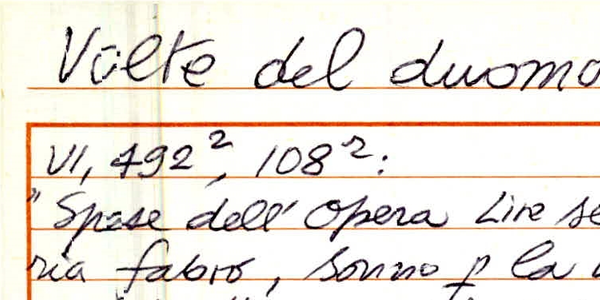 Volte del duomo
VI, 492², 108²:
"Spese dell' Opera Lire se
ria fabro, sonno p la